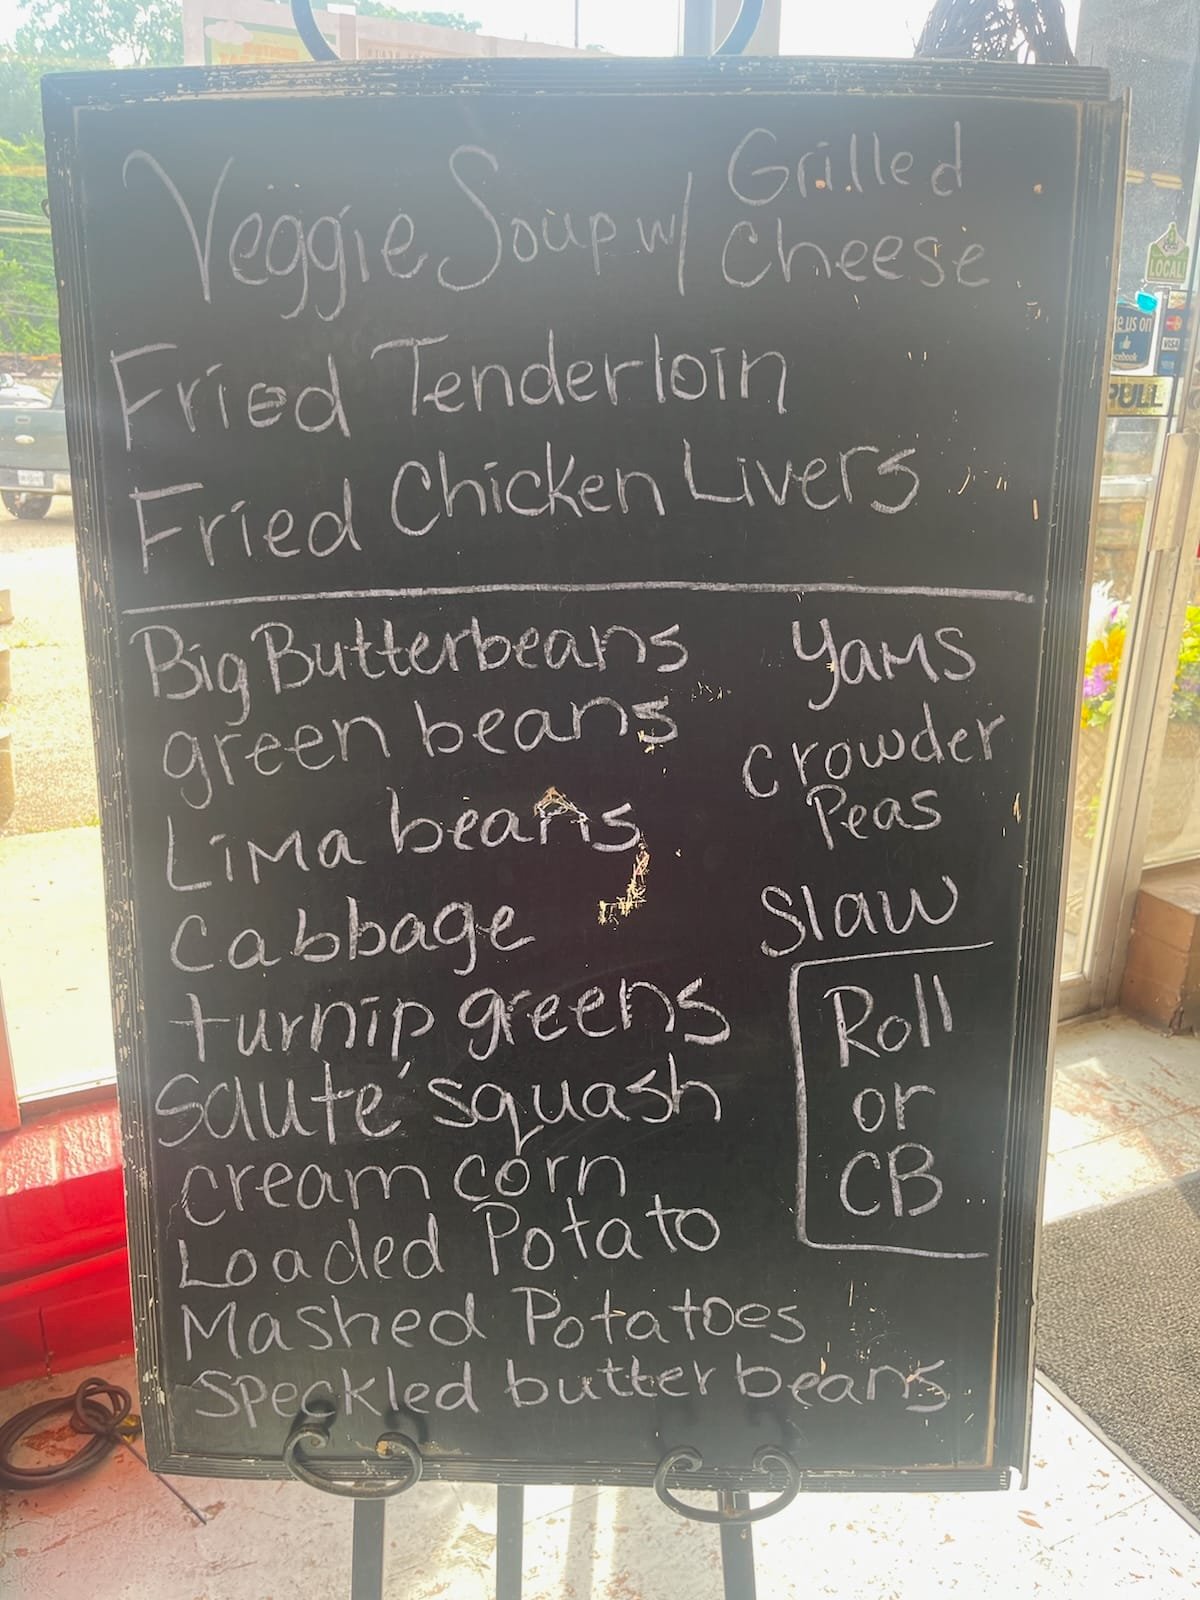 Veggie Soup w/ Grilled Cheese
Fried Tenderloin
Fried Chicken Livers
Big Butterbeans
green beans
Lima beans
Cabbage
turnip greens
Sauté squash
cream corn
Loaded Potato
Mashed Potatoes
Speckled butter beans
Yams
Crowder
Peas
Slaw
Roll
or
CB
LOCAL
us on
VISA
PULL